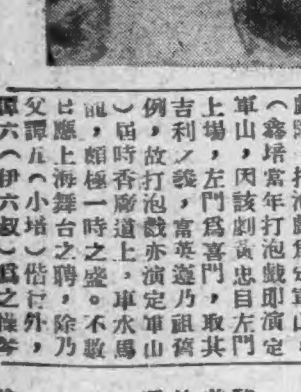 （鑫培當年打泡戲卽演定
軍山，因該劇黃忠自左門
上場，左門爲喜門，取其
吉利之義，富英遵乃祖舊
例，故打泡戲亦演定軍山
）屆時香廠道上，車水馬
龍，頗極一時之盛。不數
日應上海舞台之聘，除乃
父譚五（小培）偕行外，
譚六（伊六叔）爲之操琴